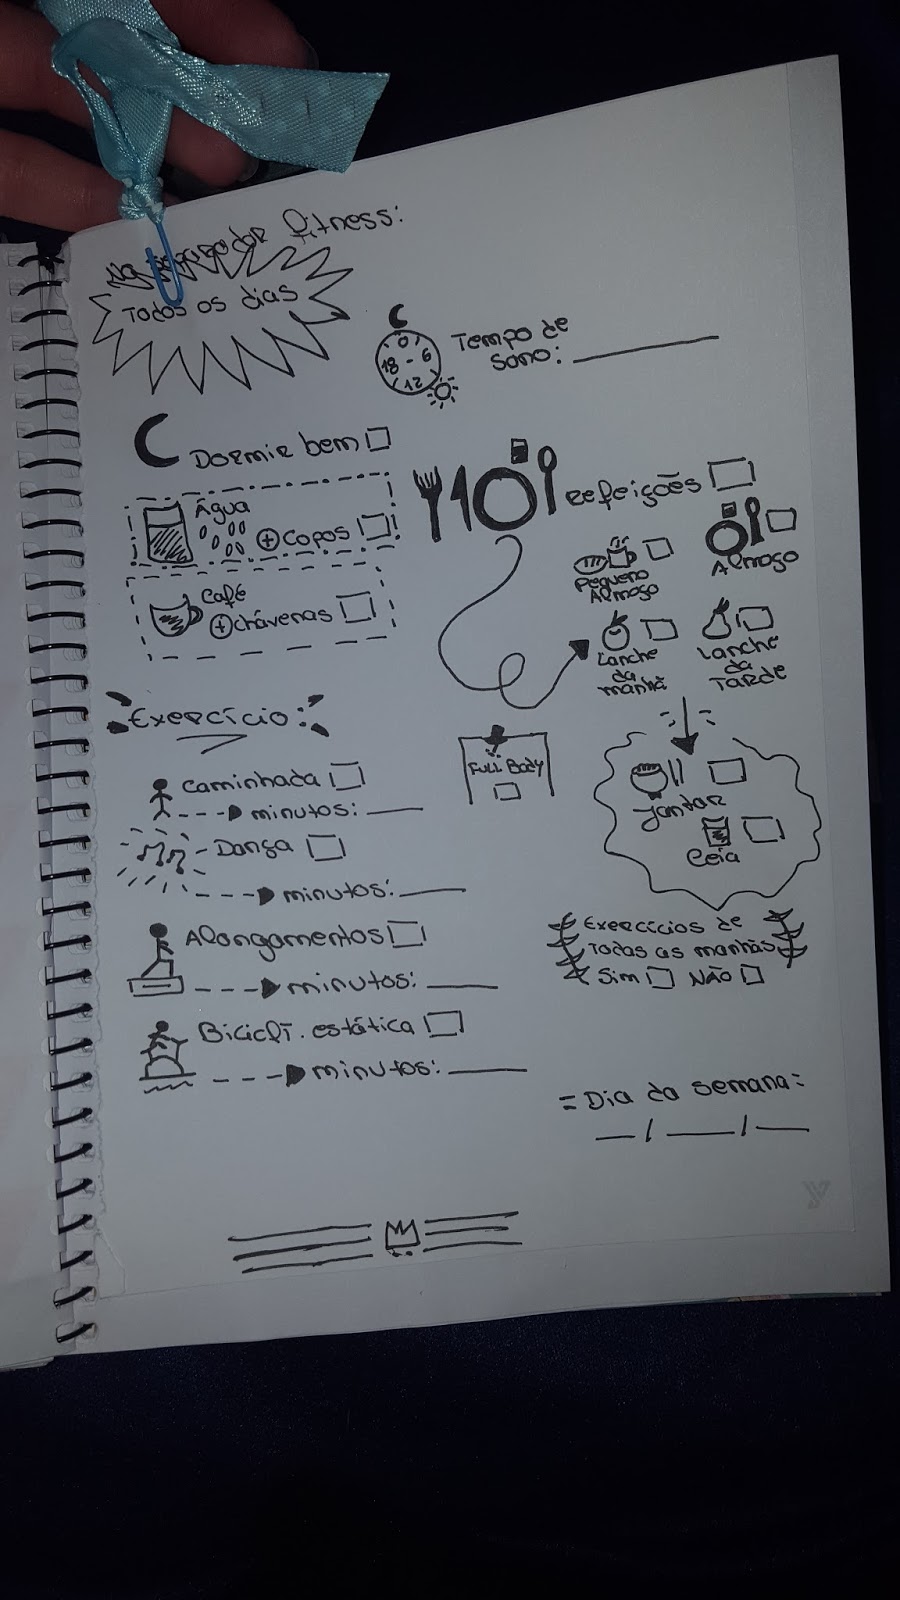 fitness:
Todos os dias
0
18 - 6
12
Tempo de
sono:
Dormir bem
Água
+ copos
Café
+ chávenas
Refeições
Pequeno
Almoço
Almoço
Lanche
da
manhã
Lanche
da
Tarde
Jantar
Ceia
Exercício:
Full Body
Caminhada
minutos:
- Dança
minutos:
Alongamentos
minutos:
Bicicl. estática
minutos:
Exercícios de
Todas as manhãs
Sim NÃO
= Dia da semana:
/ /